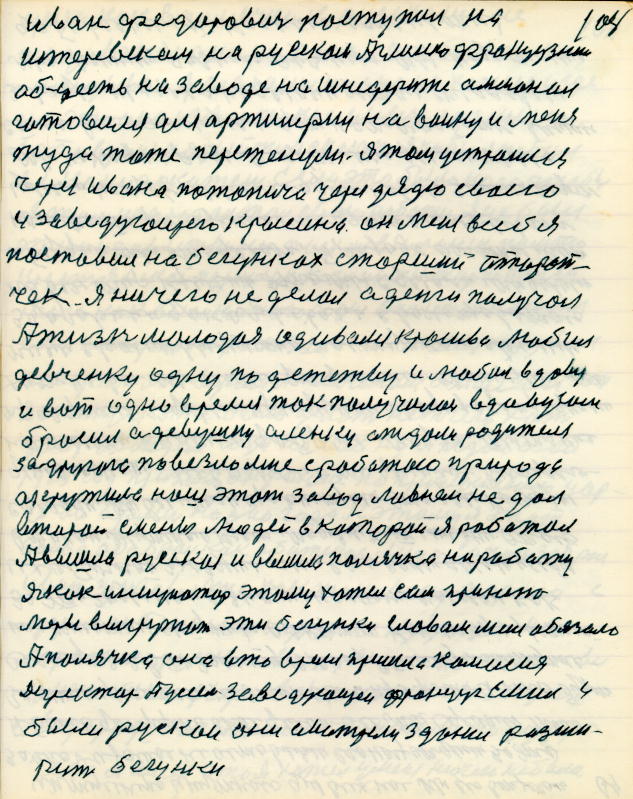 иван федорович поступил на 104
интеревском на русском Аглинко французкам
об-честь на заводе на шнедерите аммонал
готовился для артилерии на войну и меня
туда тоже перетенули. Я там устроился
через ивана потапича через дядю своего
и заведующего красина. он меня в себя
поставил на бегунках старший
чек. Я ничего не делал а денги получал
А жизнь молодая одивали красиво любил
девченку одну по детству и любил вдову
и вот одно время так получилось вдову
бросил а девушку аленку отдали родители
за другого повезло мне с работаю природа
нош этот завод главном не дал
второй смены людей в которой я работал
А вышла русская и вышла полячка на работу
я как этому хотел сам принять
меры выгружат эти бегунки словам меня обязало
А полячка она в то время пришла камисия
деректор заведующей француз Емил и
были руской они смотрели здании разши-
рить бегунки